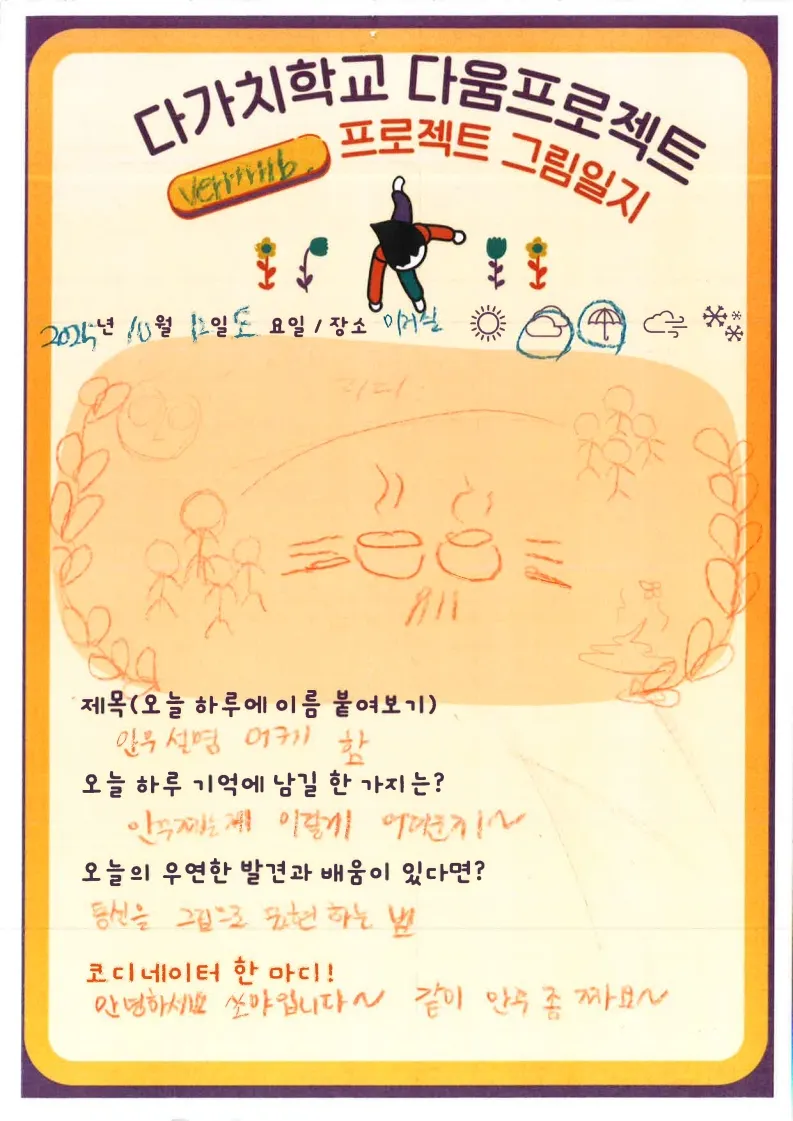 다가치학교 다움프로젝트
프로젝트 그림일지
verrrrrrb.
2025년 10월 12일 토 요일 / 장소
제목(오늘 하루에 이름 붙여보기)
안무 설명 어쿠키 함
오늘 하루 기억에 남길 한 가지는?
안무짜는게 이렇게 어려운지~
오늘의 우연한 발견과 배움이 있다면?
통신을 그림으로 표현 하는 법
코디네이터 한 마디!
안녕하세요 쏘야입니다~ 같이 안무 좀 짜요~